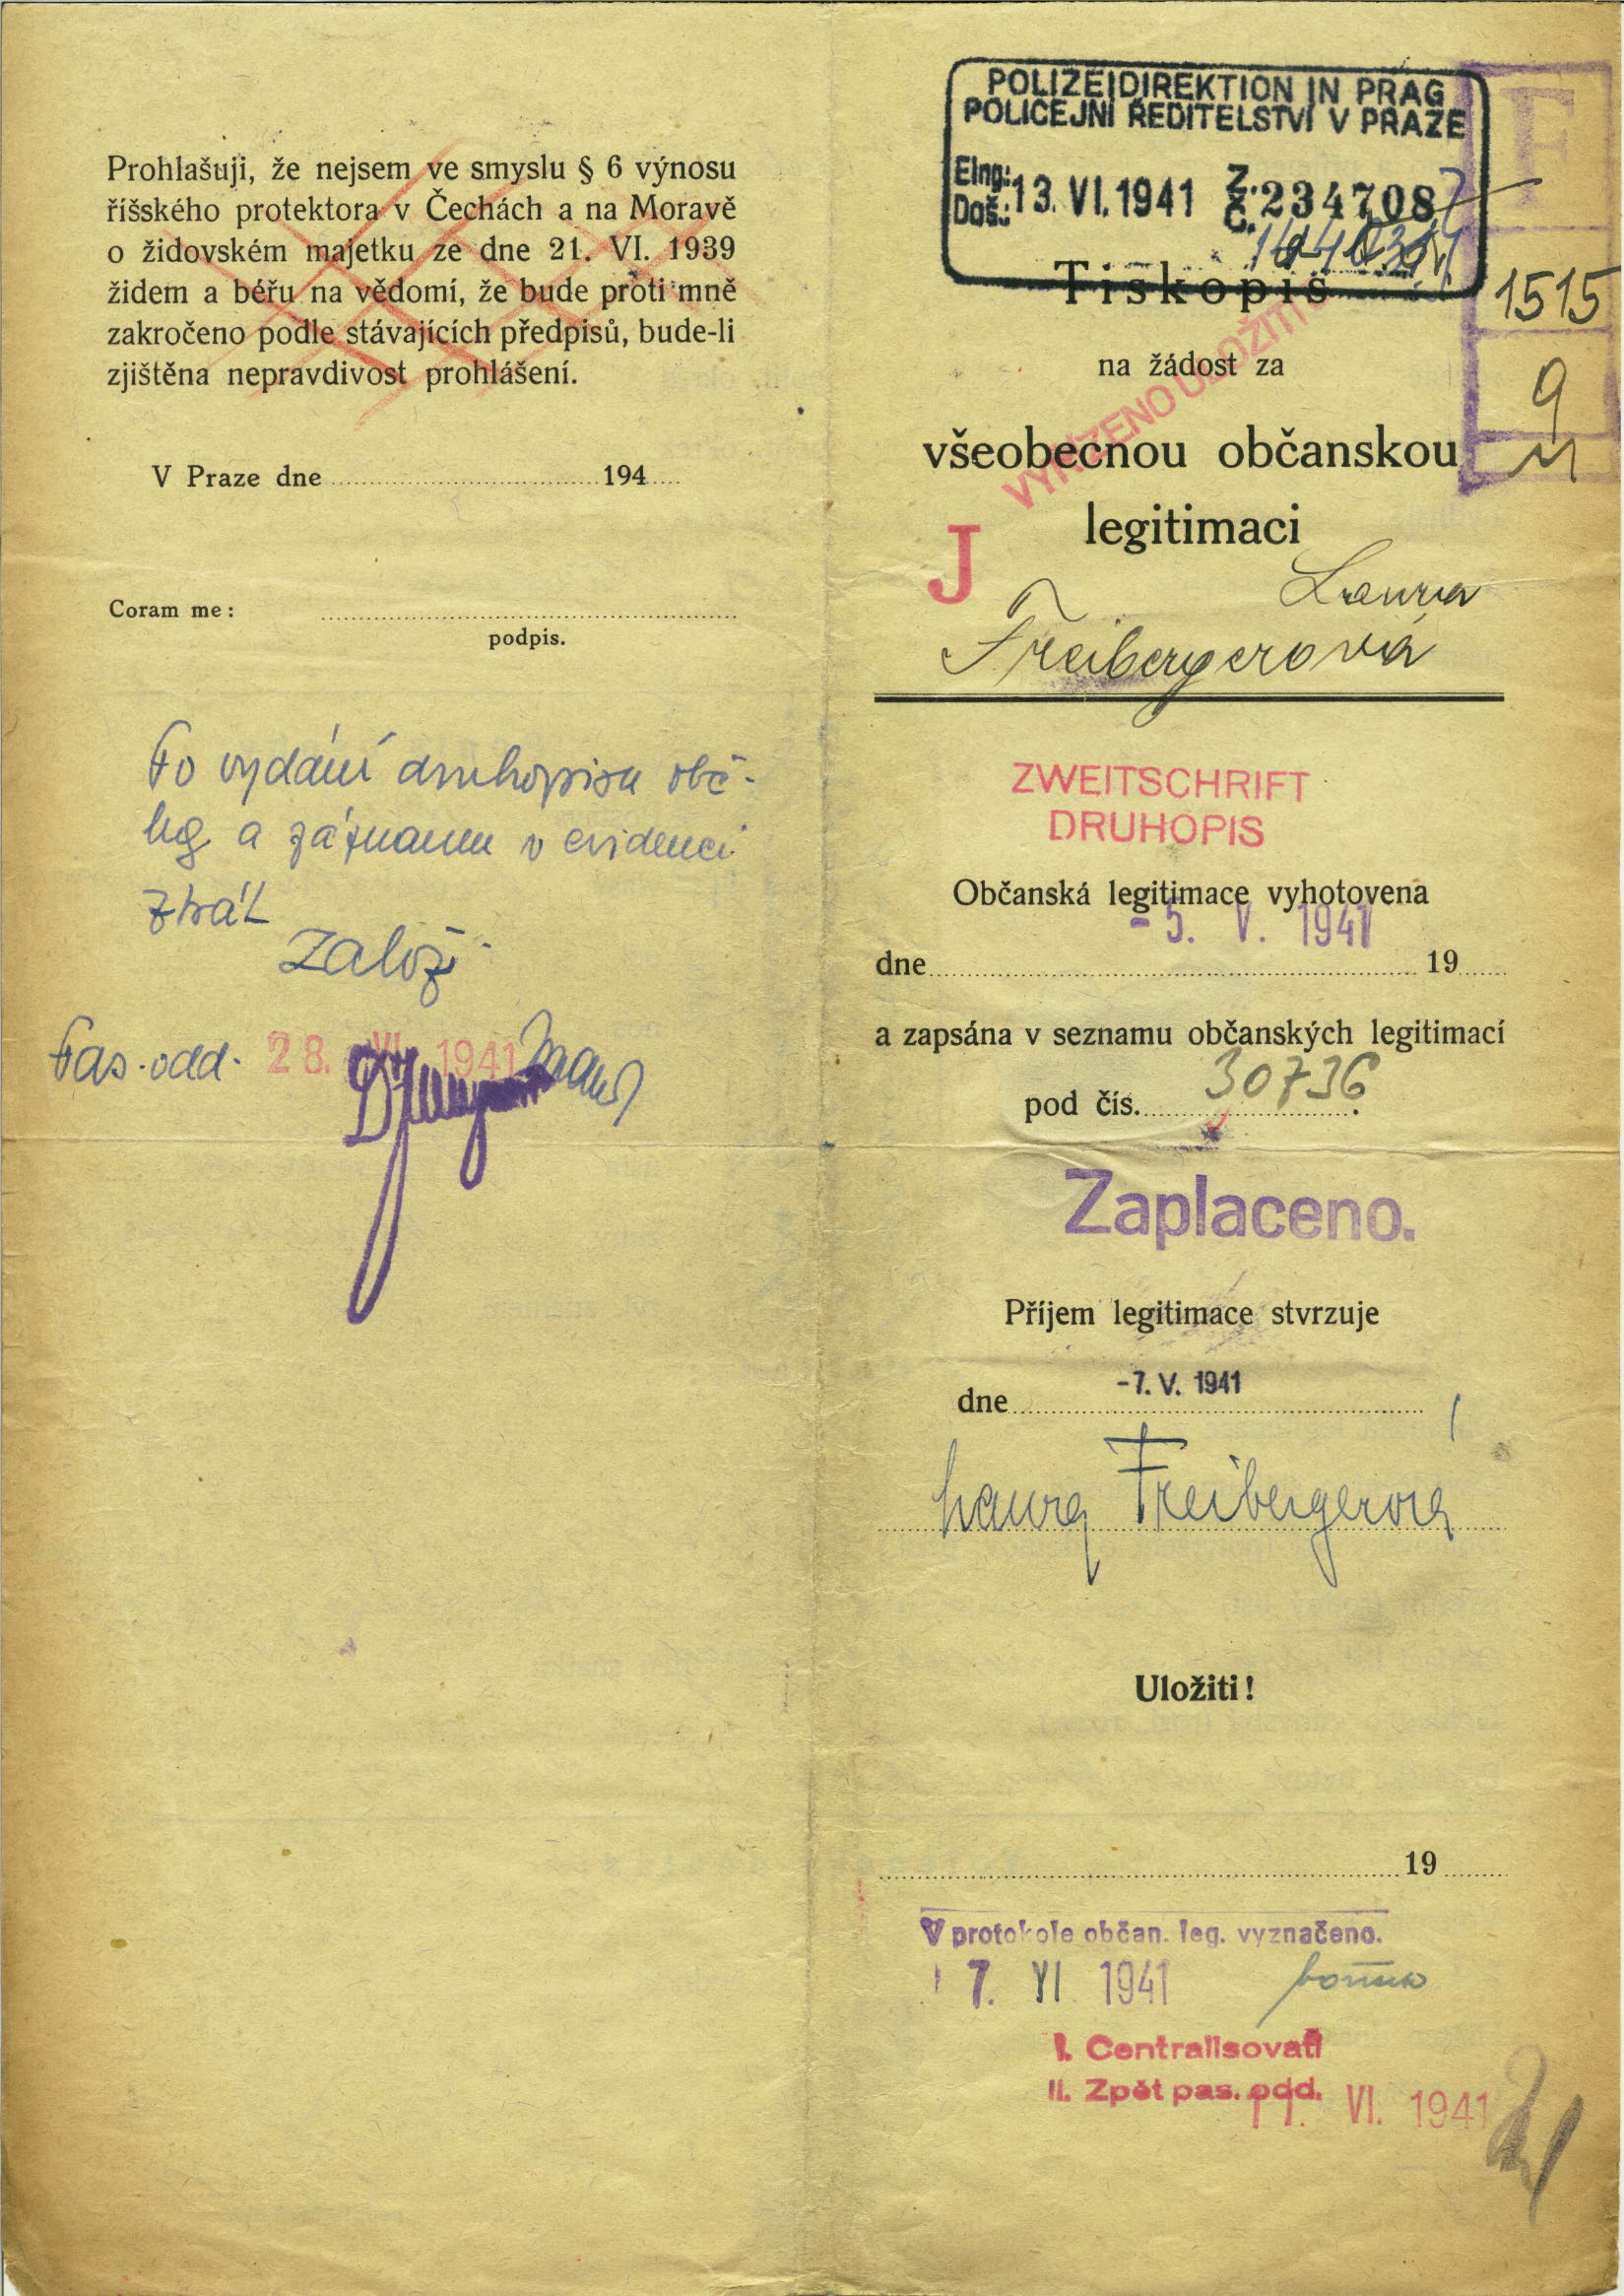 Prohlašuji, že nejsem ve smyslu § 6 výnosu
říšského protektora v Čechách a na Moravě
o židovském majetku ze dne 21. VI. 1939
židem a béřu na vědomí, že bude proti mně
zakročeno podle stávajících předpisů, bude-li
zjištěna nepravdivost prohlášení.
V Praze dne 194
Coram me:
podpis.
Po vydání druhopisu obč.
leg. a záznamu v evidenci
ztrát
Založ
Pas. odd. 28. VI. 1941
POLIZEIDIREKTION IN PRAG
POLICEJNÍ ŘEDITELSTVÍ V PRAZE
Eing.: Doš.: 13. VI. 1941 Z. Č. 234708
F
1515
9
Tiskopis
na žádost za
VYŘÍZENO ULOŽITI
všeobecnou občanskou
legitimaci
J
Laura
Freibergerová
ZWEITSCHRIFT
DRUHOPIS
Občanská legitimace vyhotovena
- 5. V. 1941
dne 19
a zapsána v seznamu občanských legitimací
pod čís. 30736.
Zaplaceno.
Příjem legitimace stvrzuje
dne -7. V. 1941
Laura Freibergerová
Uložiti!
19
V protokole občan. leg. vyznačeno.
7. VI 1941
I. Centralisovati
II. Zpět pas. odd.
VI. 1941